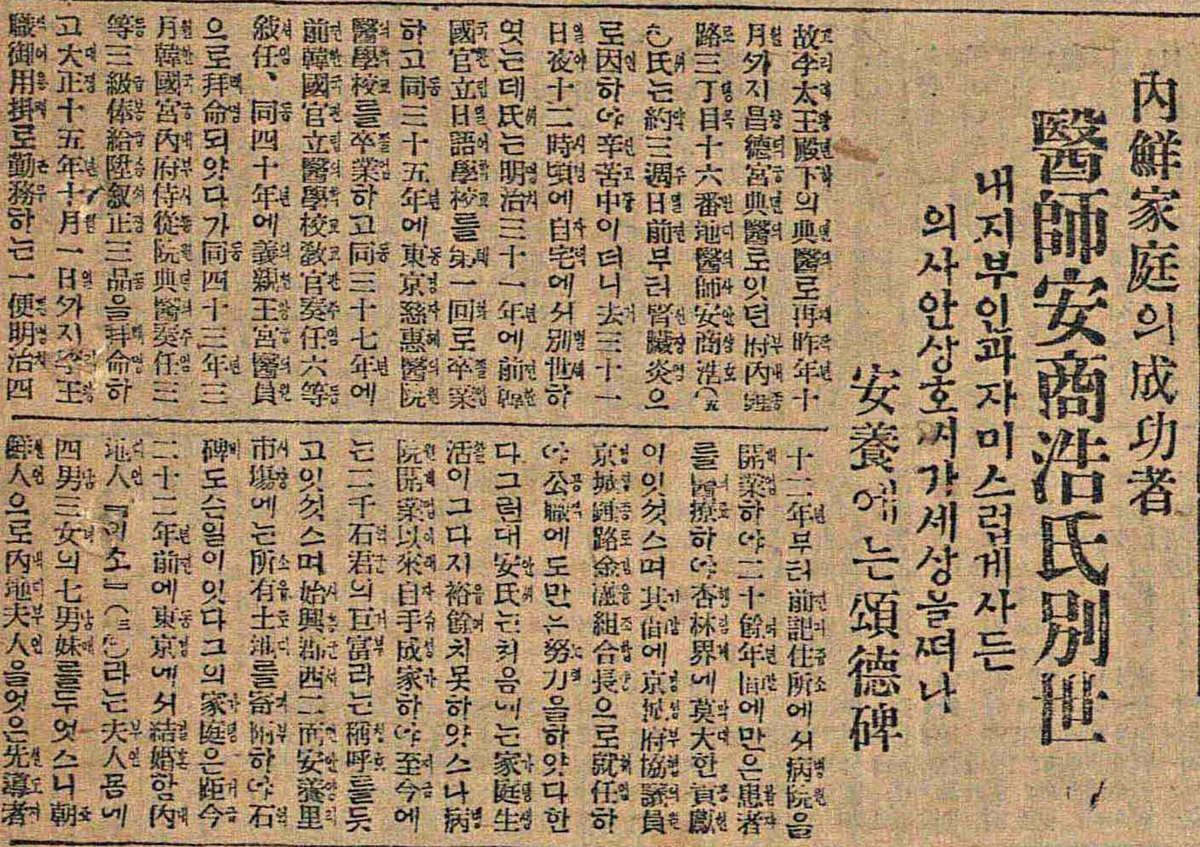 內鮮家庭의成功者
醫師安商浩氏別世
내지부인과자미스럽게사든
의사안상호씨가세상을떠나
安養에는頌德碑
故李太王殿下의典醫로再昨年十
月外지昌德宮典醫로잇던府內鍾
路三丁目十六番地醫師安商浩(五
氏는約三週日前부터腎臟炎으
로因하야辛苦中이더니去三十一
日夜十二時頃에自宅에서別世하
엿는데氏는明治三十一年에前韓
國官立日語學校를第一回로卒業
하고同三十五年에東京慈惠醫院
醫學校를卒業하고同三十七年에
前韓國官立醫學校敎官奏任六等
敍任、同四十年에義親王宮醫員
으로拜命되얏다가同四十三年三
月韓國宮內府侍從院典醫奏任三
等三級俸給陞敍正三品을拜命하
고大正十五年十月一日外지李王
職御用掛로勤務하는一便明治四
十二年부터前記住所에서病院을
開業하야二十餘年间에만은患者
를醫療하야杏林界에莫大한貢獻
이잇섯스며其他에京城府協議員
京城鍾路金融組合長으로就任하
야公職에도만은努力을하얏다한
다그런대安氏는처음에는家庭生
活이그다지裕餘치못하얏스나病
院開業以來自手成家하야至今에
는二千石君의巨富라는稱呼를듯
고잇섯스며始興郡西二面安養里
市場에는所有土地를寄附하야石
碑도슨일이잇다그의家庭은距今
二十二年前에東京에서結婚한內
地人『이소』라는夫人몸에
四男三女의七男妹를두엇스니朝
鮮人으로內地夫人을엇은先導者